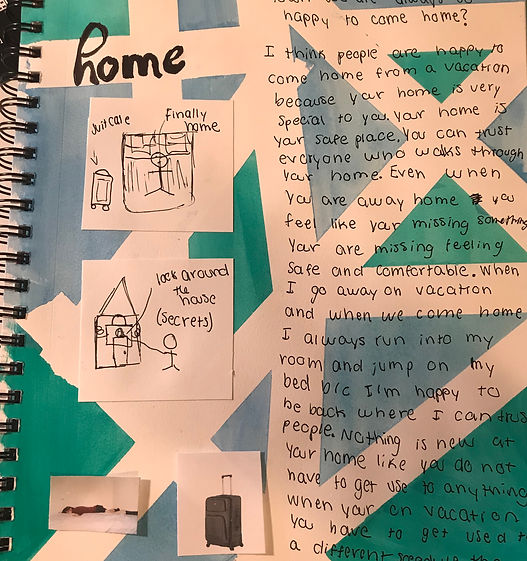 home
suitcase
Finally
home
look around
the
house
(secrets)
happy to come home?
I think people are happy to
come home from a vacation
because your home is very
special to you. Your home is
your safe place. You can trust
everyone who walks through
your home. Even when
you are away home you
feel like your missing something
Your are missing feeling
safe and comfortable. When
I go away on vacation
and when we come home
I always run into my
room and jump on my
bed b/c I'm happy to
be back where I can trust
people. Nothing is new at
your home like you do not
have to get use to anything
when your on vacation
you have to get used to
a different